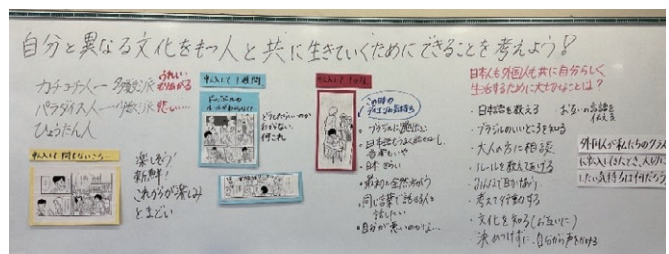 自分と異なる文化をもつ人と共に生きていくためにできることを考えよう!
カチコチ人
多数派
うれしい
パラダイス人
少数派
悲しい…
ひょうたん人
楽しそう
新鮮!
これからが楽しみ
とまどい
どうしたらいいのか
わからない
何これ
この時の
気持ち
・ブラジルに帰りたい
・日本語もうまく話せないし、
・日本きらい
・最初と全然ちがう
・同じ言葉で話せる人と
話したい
・自分が悪いのかな…
日本人も外国人も共に自分らしく
生活するために大切なことは?
・日本語を教える
お互いの言語を
伝える
・ブラジルのいいところを知る
・大人の方に相談
・ルールを教えてあげる
・みんなで助け合う
・考えて行動する
・文化を知る(お互いに)
・決めつけずに、自分から声をかける
外国人が私たちのクラス
に転入してきたとき、大切に
したい気持ちは何だろう